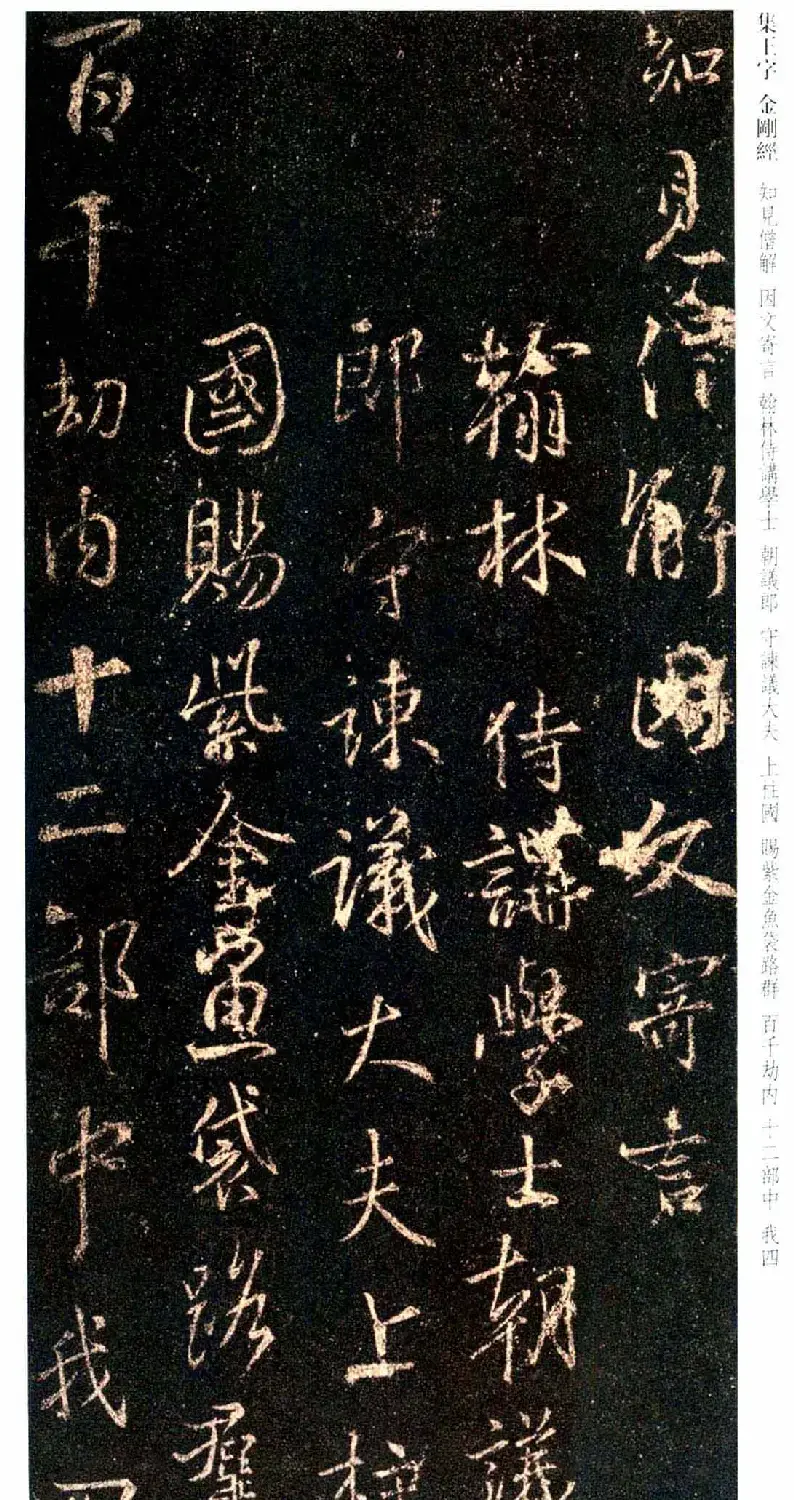 集王字 金剛經 知見僧解 因文寄言 翰林侍講學士 朝議郎 守諫議大夫 上柱國 賜紫金魚袋路群 百千劫内 十二部中 我四
知見僧解因文寄言
翰林侍講學士朝議
郎守諫議大夫上柱
國賜紫金魚袋路羣
百千劫内十二部中我四